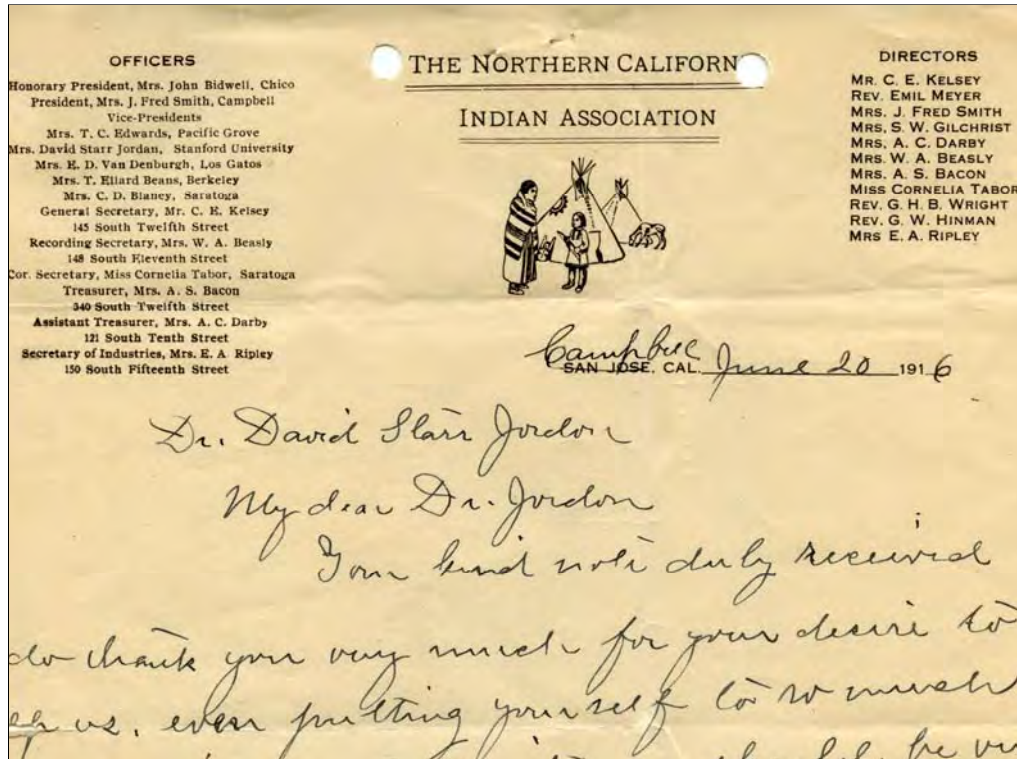 OFFICERS
Honorary President, Mrs. John Bidwell, Chico
President, Mrs. J. Fred Smith, Campbell
Vice-Presidents
Mrs. T. C. Edwards, Pacific Grove
Mrs. David Starr Jordan, Stanford University
Mrs. E. D. Van Denburgh, Los Gatos
Mrs. T. Ellard Beans, Berkeley
Mrs. C. D. Blaney, Saratoga
General Secretary, Mr. C. E. Kelsey
145 South Twelfth Street
Recording Secretary, Mrs. W. A. Beasly
148 South Eleventh Street
Cor. Secretary, Miss Cornelia Tabor, Saratoga
Treasurer, Mrs. A. S. Bacon
340 South Twelfth Street
Assistant Treasurer, Mrs. A. C. Darby
121 South Tenth Street
Secretary of Industries, Mrs. E. A. Ripley
150 South Fifteenth Street
THE NORTHERN CALIFORN
INDIAN ASSOCIATION
DIRECTORS
MR. C. E. KELSEY
REV. EMIL MEYER
MRS. J. FRED SMITH
MRS. S. W. GILCHRIST
MRS. A. C. DARBY
MRS. W. A. BEASLY
MRS. A. S. BACON
MISS CORNELIA TABOR
REV. G. H. B. WRIGHT
REV. G. W. HINMAN
MRS E. A. RIPLEY
Campbell
SAN JOSE, CAL. June 20 1916
Dr. David Starr Jordon
My dear Dr. Jordon
Your kind note duly received
do thank you very much for your desire to
us, even putting yourself to so much
be